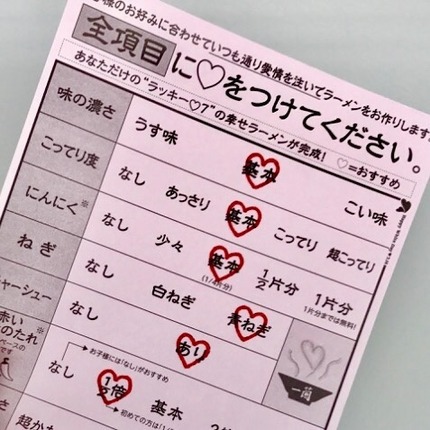 様のお好みに合わせていつも通り愛情を注いでラーメンをお作りします
全項目に♡をつけてください。
あなただけの“ラッキー♡7”の幸せラーメンが完成! ♡=おすすめ
味の濃さ うす味 基本 こい味
こってり度 なし あっさり 基本 こってり 超こってり
にんにく※ なし 少々 基本 1/2片分 1片分
(1/4片分) 1片分までは無料!
ねぎ なし 白ねぎ 青ねぎ
チャーシュー なし あり
お子様には「なし」がおすすめ
赤い
のたれ※ なし 1/2倍 基本
ベースの
です
初めての方は
さ 超かた
一蘭